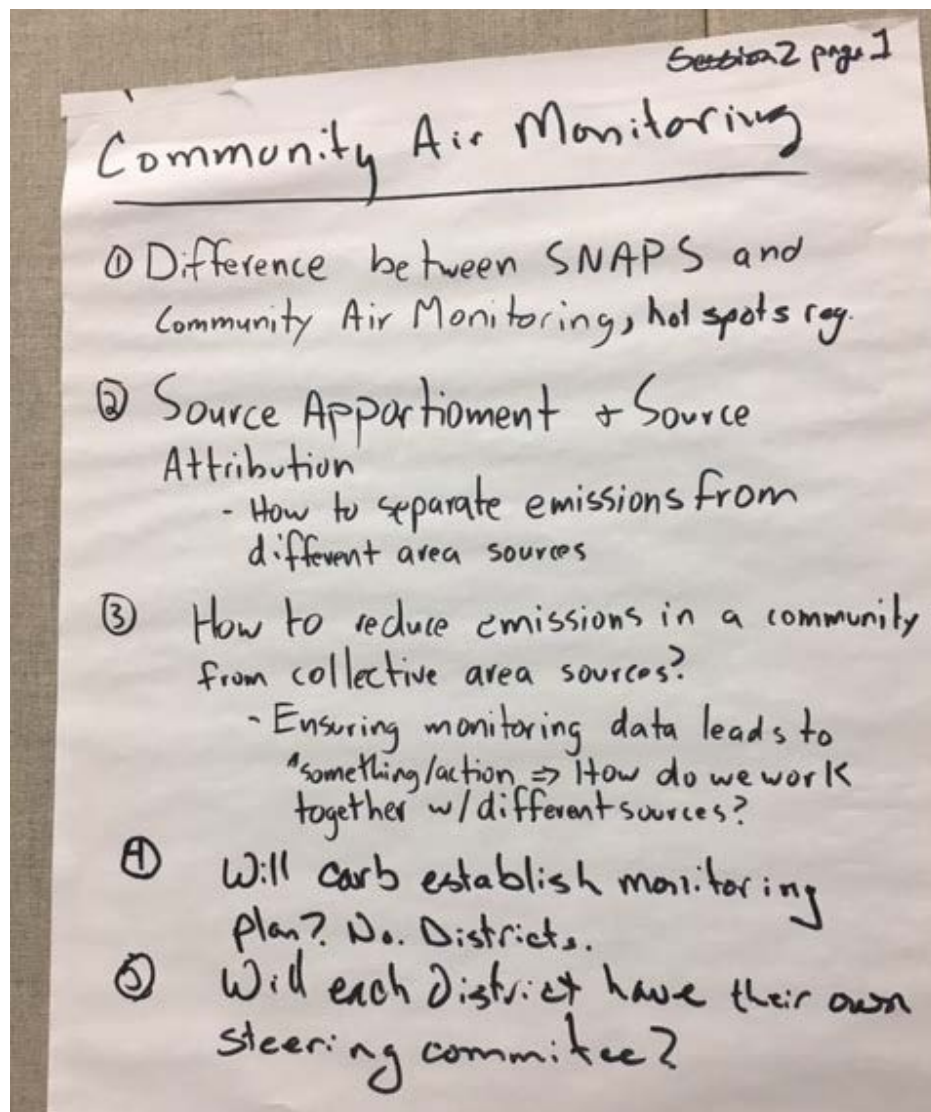 Session 2 page 1
Community Air Monitoring
① Difference between SNAPS and
Community Air Monitoring, hot spots reg.
② Source Apportioment + Source
Attribution
- How to separate emissions from
different area sources
③ How to reduce emissions in a community
from collective area sources?
- Ensuring monitoring data leads to
"something/action ⇒ How do we work
together w/different sources?
④ Will carb establish monitoring
plan? No. Districts.
⑤ Will each District have their own
steering commitee?